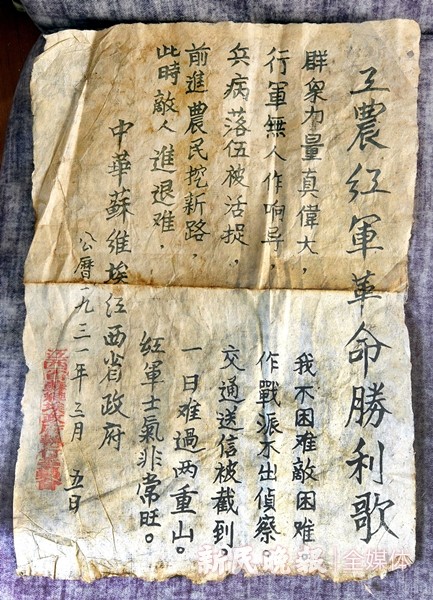 工農红軍革命勝利歌
群衆力量真偉大，我不困难敵困难。
行軍無人作响导，作戰派不出偵察。
兵病落伍被活捉，交通送信被截到，
前進農民挖新路，一日难過两重山。
此時敵人進退难，红軍士氣非常旺。
中華蘇維埃江西省政府
公曆一九三一年三月五日
新民晚報|全媒体